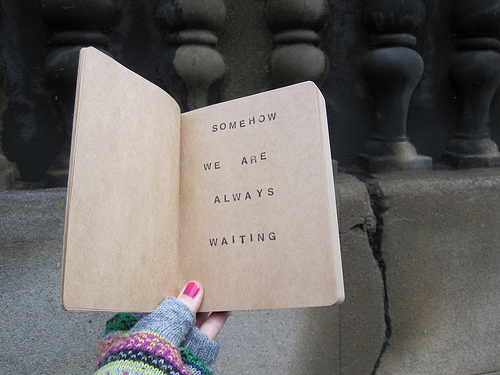 SOMEHOW
WE ARE
ALWAYS
WAITING